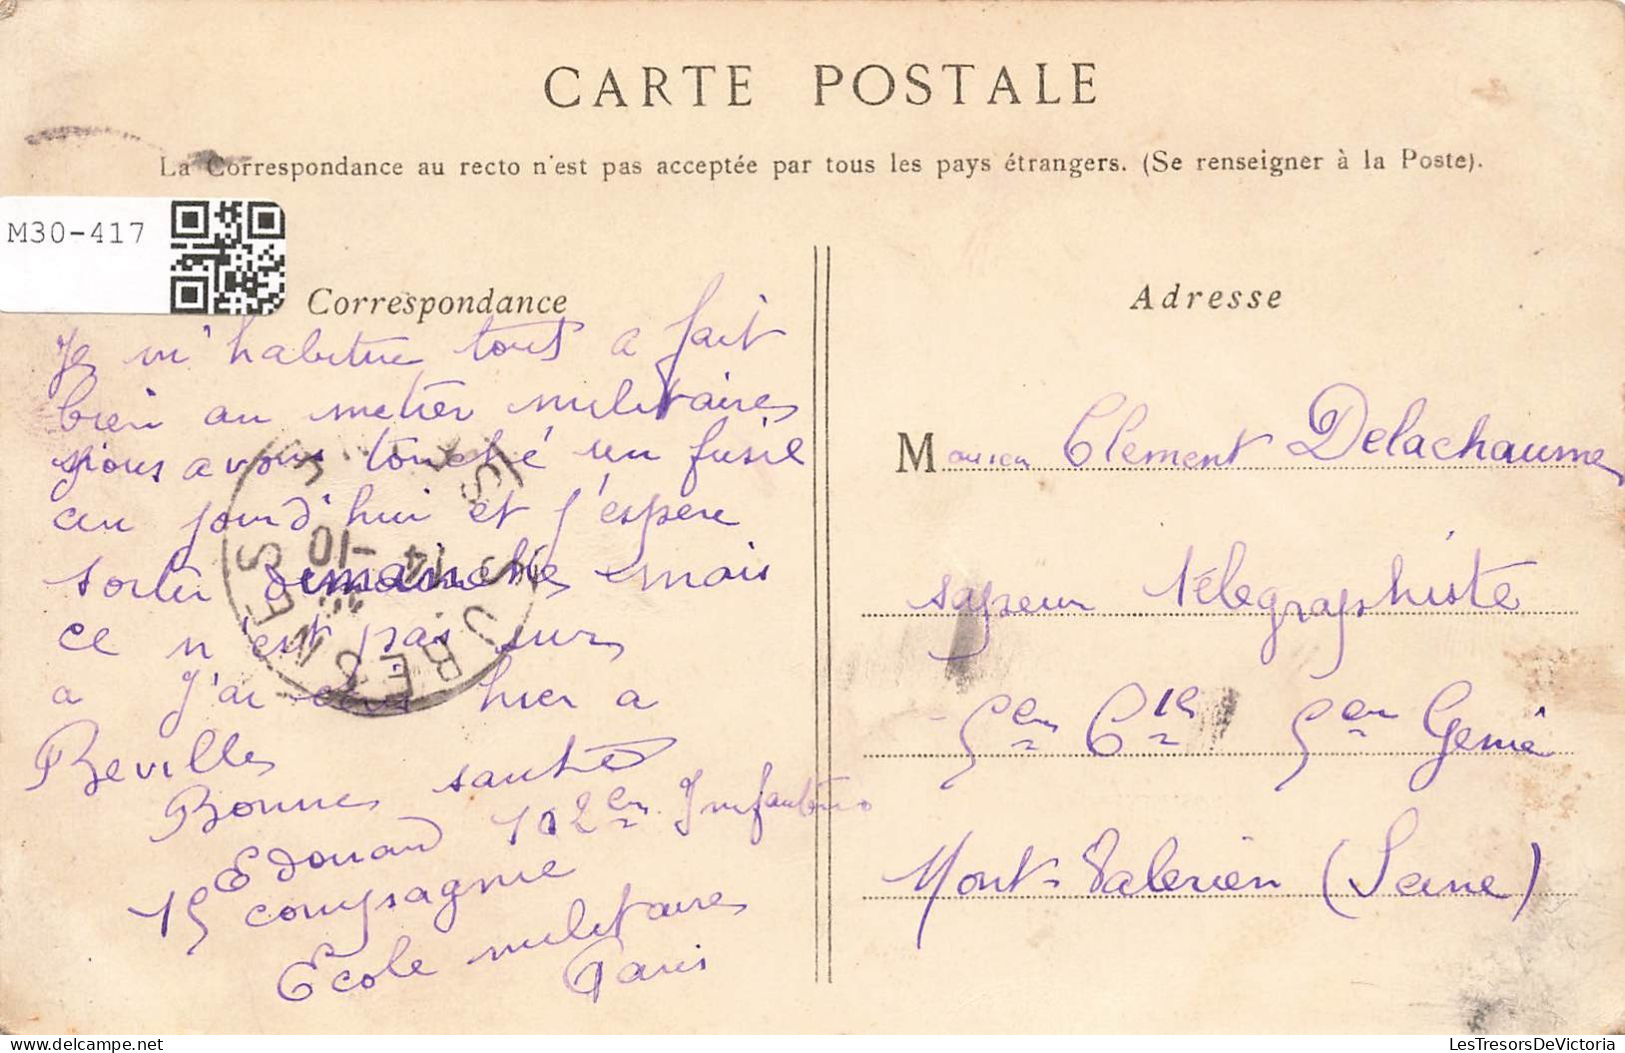 CARTE POSTALE
La Correspondance au recto n'est pas acceptée par tous les pays étrangers. (Se renseigner à la Poste).
M30-417
Correspondance
Je m'habitue tout a fait
bien au metier militaires
nous avons touché un fusil
au jourd'hui et j'espere
sortir dimanche mais
ce n'est pas sur
a J'ai hier a
Beville
Bonnes santé
Edouard 102en Infanterie
15 compagnie
Ecole militaires
Paris
SURESNES
Adresse
Monsieur Clement Delachaume
sapeur télegraphiste
5en Cie 5en Genie
Mont-Valerien (Seine)
LesTresorsDeVictoria
delcampe.net